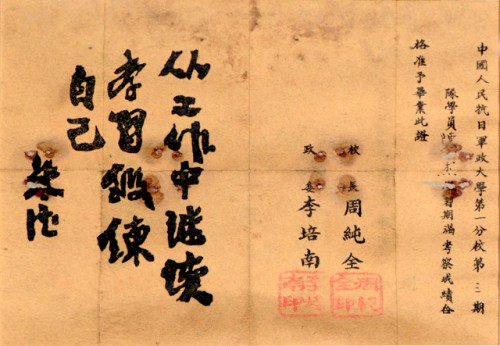 中國人民抗日軍政大學第一分校第三期
隊學員 習期滿考察成績合
格准予畢業此證
校長 周純全
政委 李培南
周純
全印
南印
从工作中继续
学習鍛鍊
自己